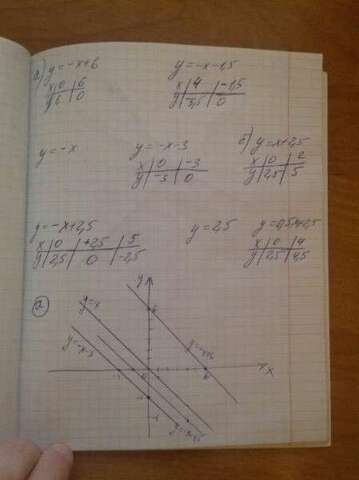 а) y=-x+6
x 0 6
y 6 0
y=-x-1,5
x 4 -1,5
y 3,5 0
y=-x
y=-x-3
x 0 -3
y -3 0
б) y=x+2,5
x 0 2
y 2,5 5
y=-x+2,5
x 0 +2,5 5
y 2,5 0 -2,5
y=2,5
x 0 4
y 2,5 4,5
а
y
y=-x
y=-x-3
x